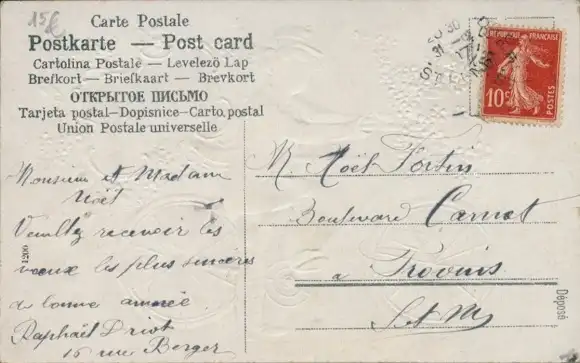 15€
Carte Postale
Postkarte — Post card
Cartolina Postale — Levelező Lap
Brefkort — Briefkaart — Brevkort
ОТКРЫТОЕ ПИСЬМО
Tarjeta postal—Dopisnice—Carto. postal
Union Postale universelle
REPUBLIQUE FRANÇAISE
10c
POSTES
Monsieur et Madame
Noël
Veuillez recevoir les
vœux les plus sincères
de bonne année.
Raphaël Driot
16 rue Berger
M. Noël Fortin
Boulevard Carnot
a Provins
S. et M.
1200
Déposé